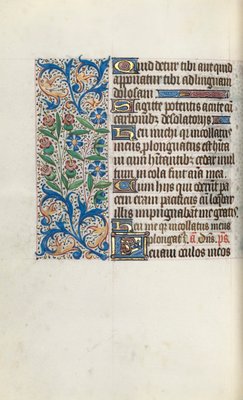 Quid detur tibi aut quid
apponatur tibi ad linguam
dolosam
Sagitte potentis acute cū
carbonibꝫ desolatoriis
Heu michi qꝫ incolatus
meus plongatus est hītaui
cum hītantibꝫ cedar mul
tum in cola fuit aīa mea
Cum hiis qui oderūt pa
cem eram pacificus cū loqbar
illis impugnabāt me gratis
Heu me qꝫ incollatus meus
plongatꝫ ā Dñs. ps
Leuaui oculos meos